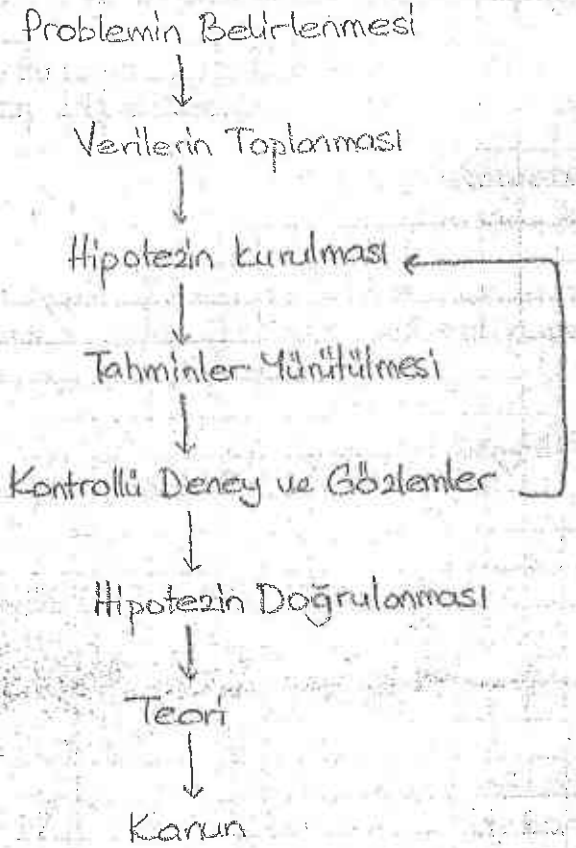 Problemin Belirlenmesi
Verilerin Toplanması
Hipotezin kurulması
Tahminler Yürütülmesi
Kontrollü Deney ve Gözlemler
Hipotezin Doğrulanması
Teori
Kanun